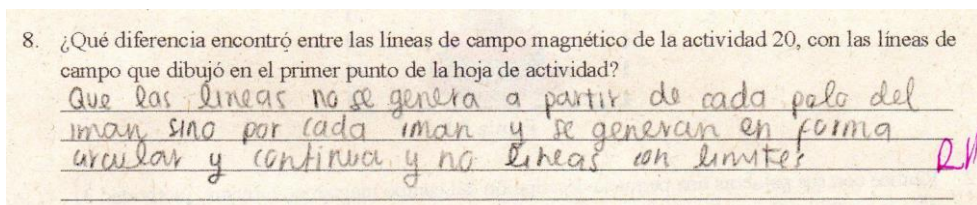 8. ¿Qué diferencia encontró entre las líneas de campo magnético de la actividad 20, con las líneas de
campo que dibujó en el primer punto de la hoja de actividad?
Que las lineas no se genera a partir de cada polo del
iman sino por cada iman y se generan en forma
circular y continua y no lineas con limites